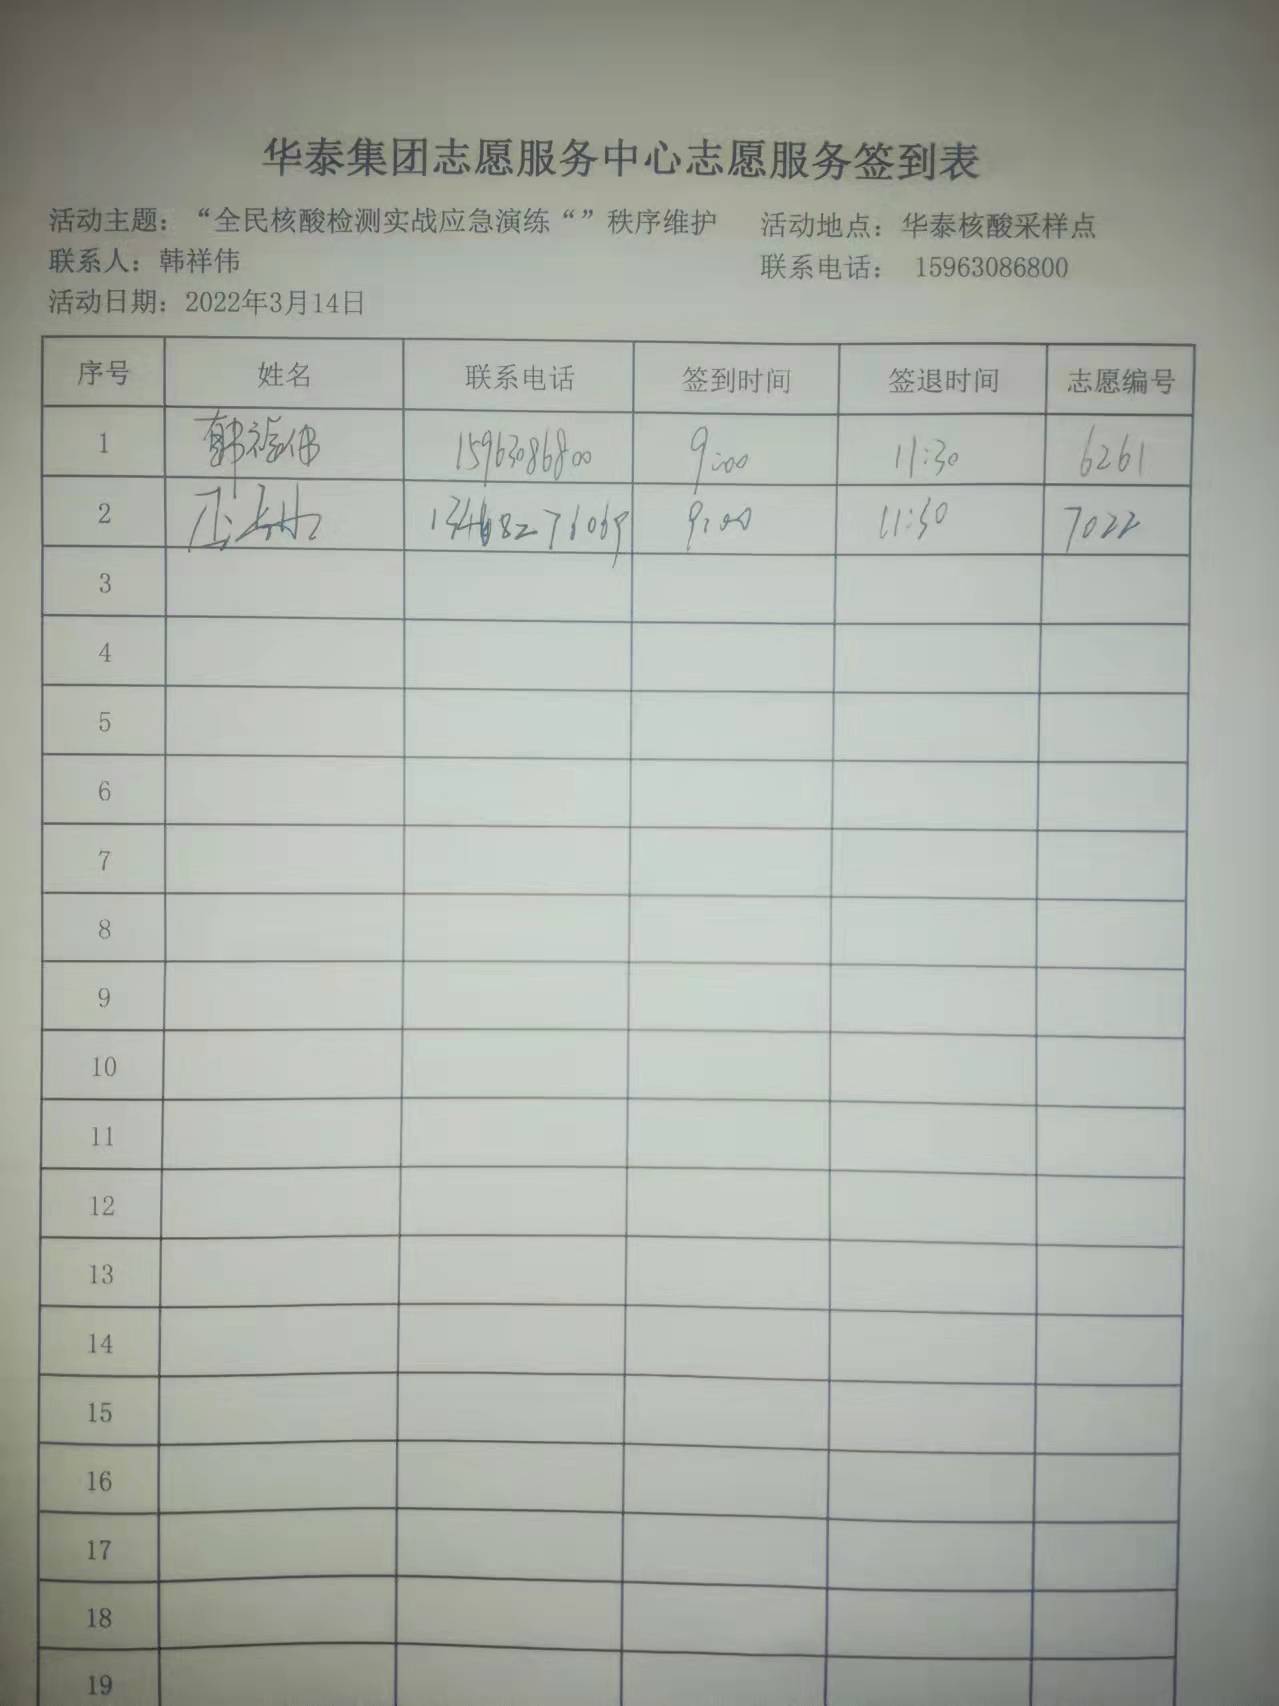 华泰集团志愿服务中心志愿服务签到表
活动主题：“全民核酸检测实战应急演练“”秩序维护 活动地点：华泰核酸采样点
联系人：韩祥伟 联系电话： 15963086800
活动日期：2022年3月14日
序号 姓名 联系电话 签到时间 签退时间 志愿编号
1 韩祥伟 15963086800 9:00 11:30 6261
2 9:00 11:30 7022
3
4
5
6
7
8
9
10
11
12
13
14
15
16
17
18
19